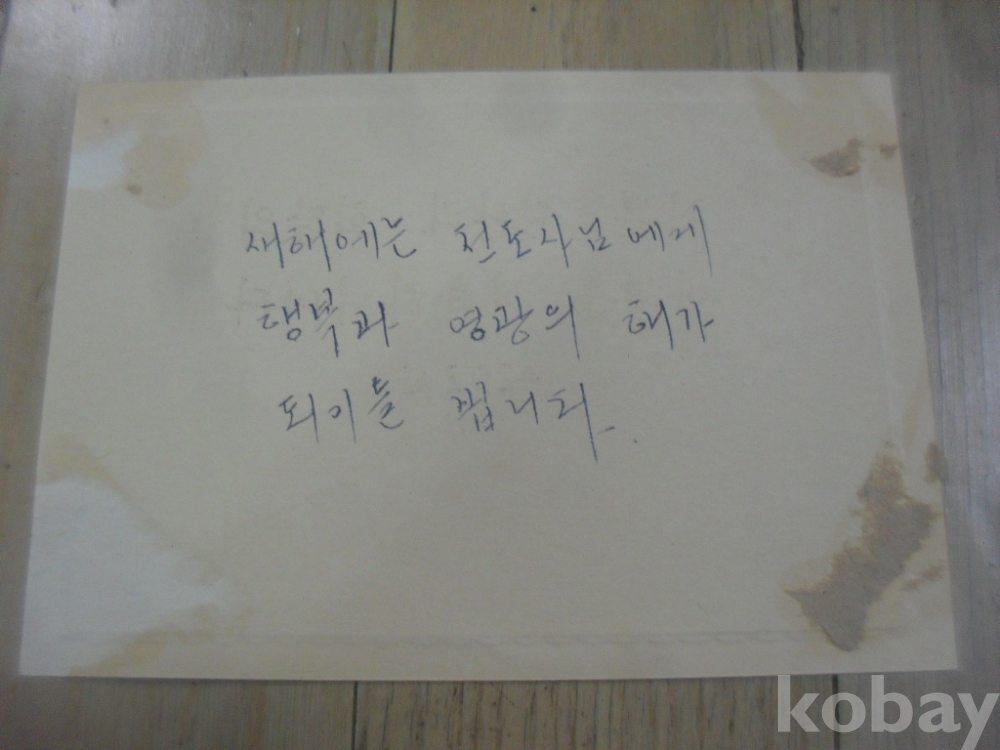 새해에는 전도사님에게
행복과 영광의 해가
되기를 빕니다.
kobay